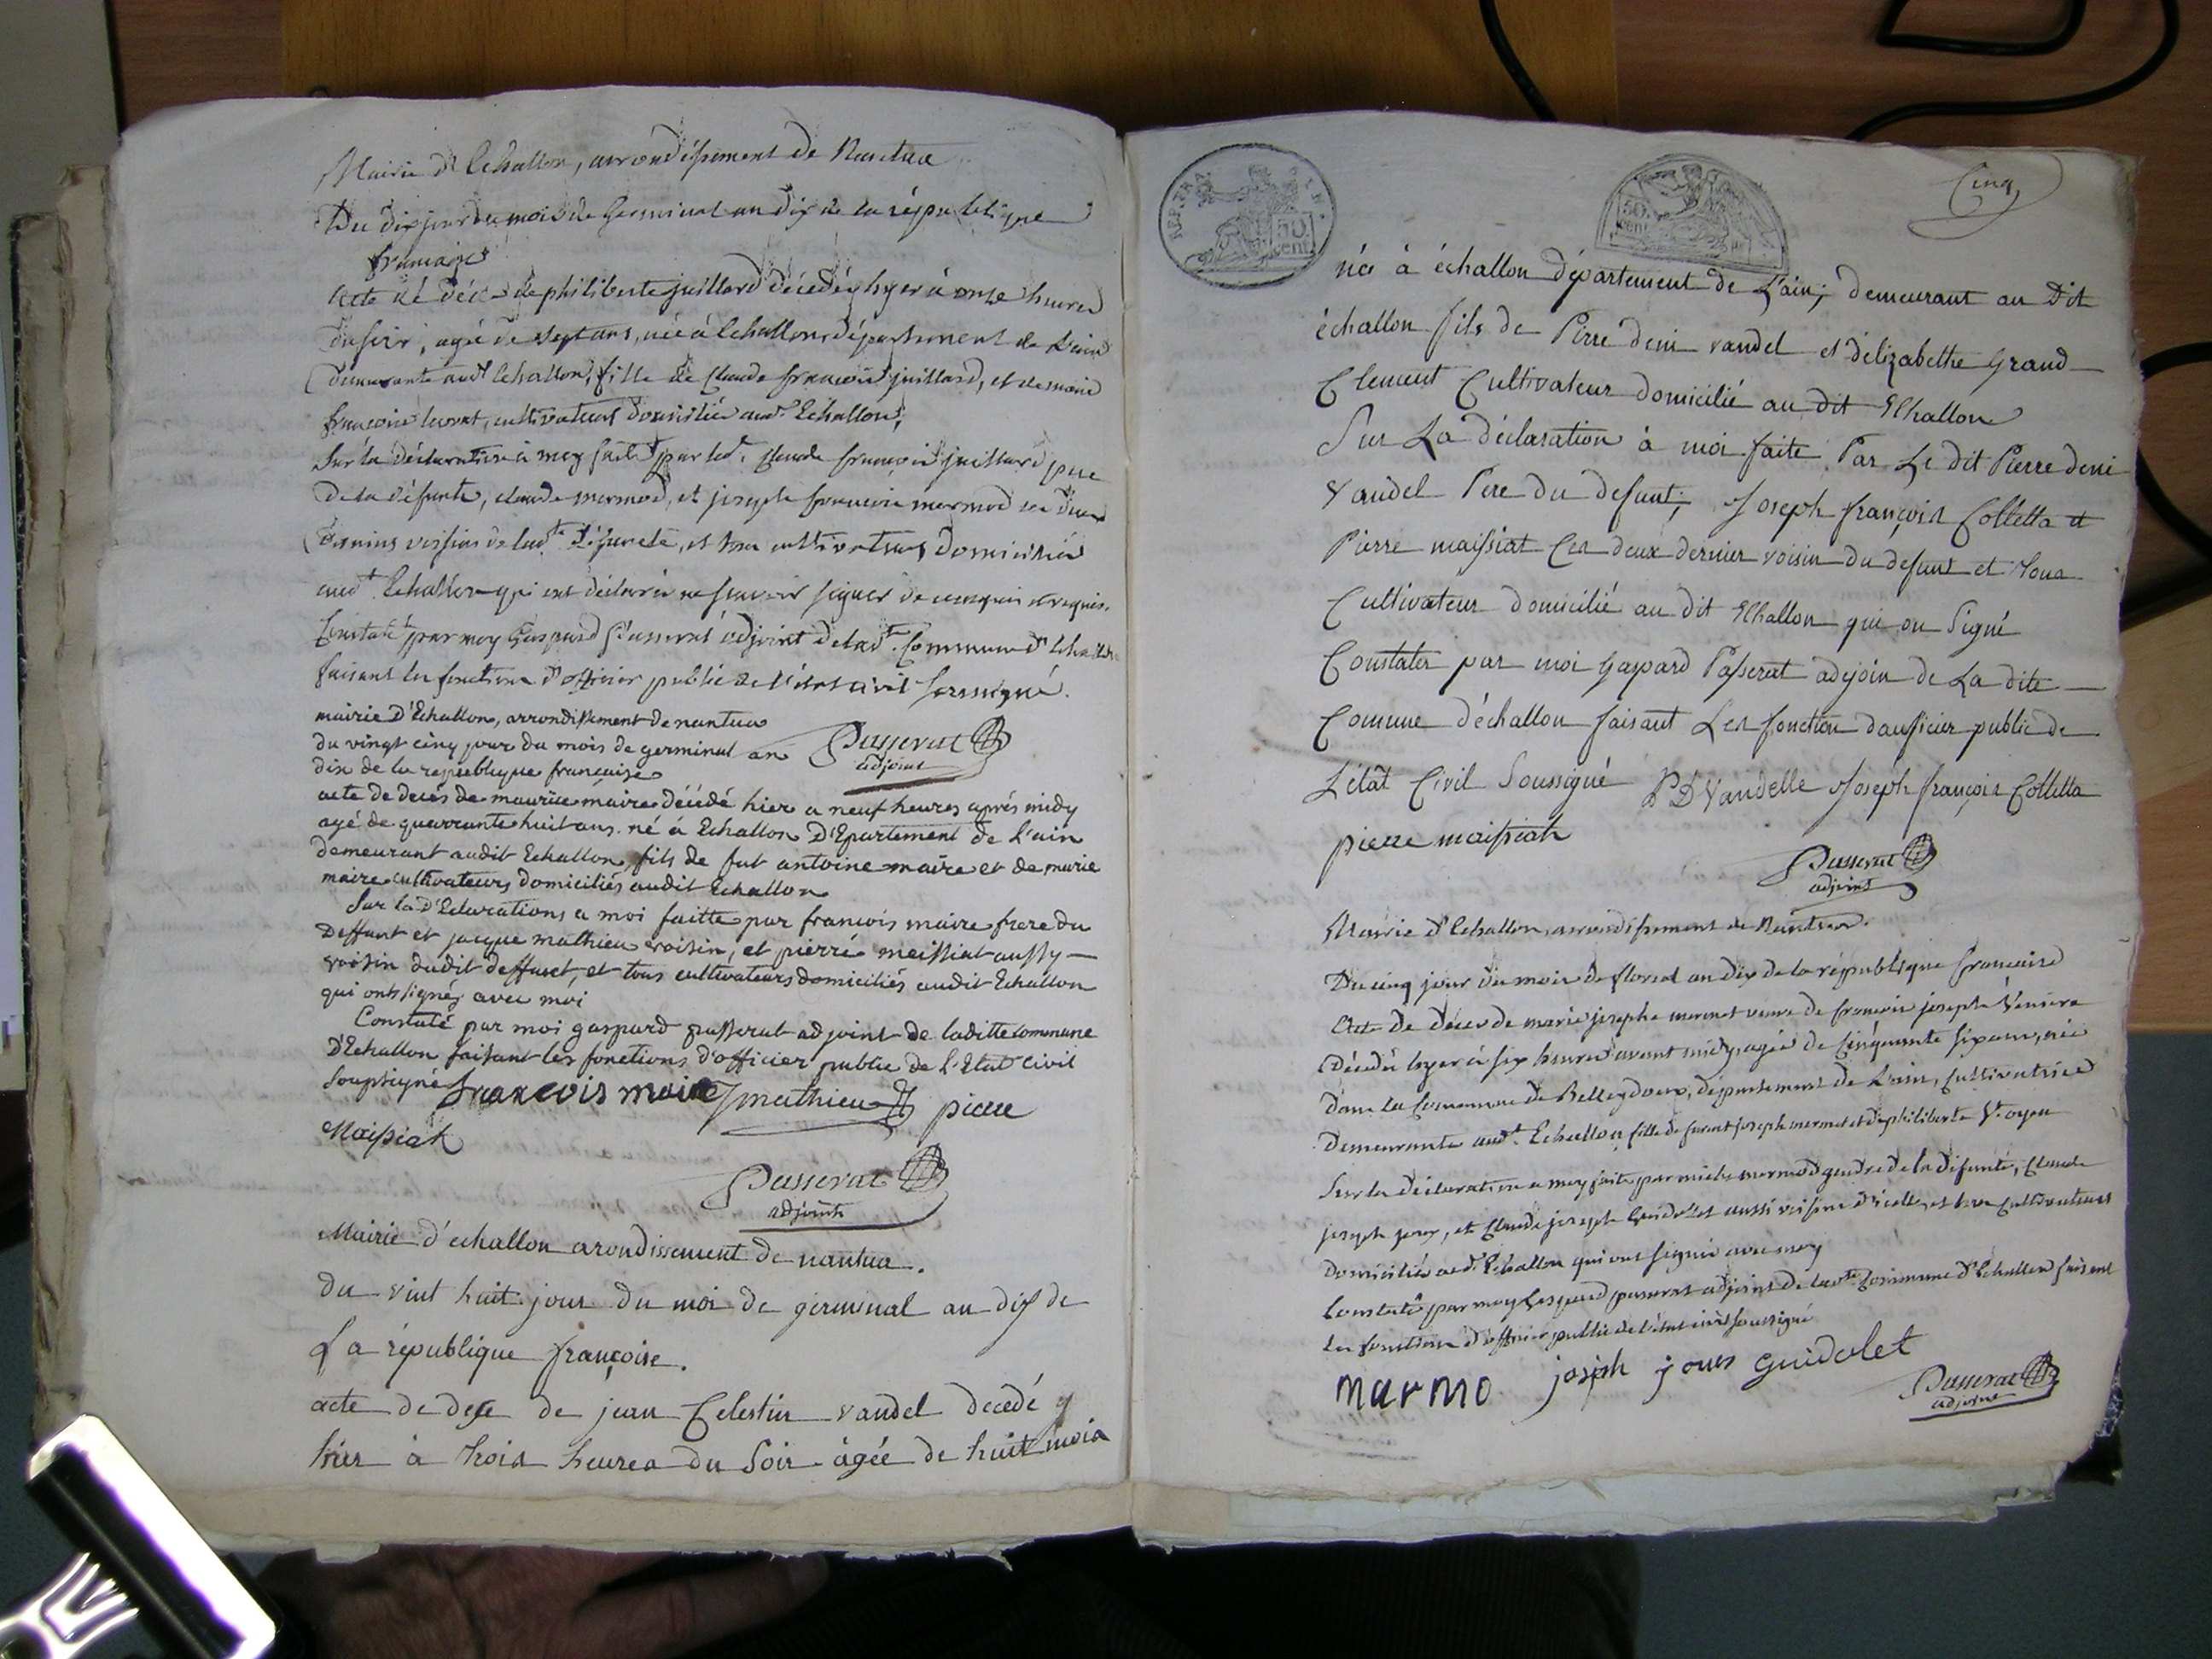 Mairie d'Echallon, arrondissement de Nantua
Du dix jour du mois de Germinal an dix de la république
francaise
Acte de décès de philiberte juillard décédéy hyer à onze heures
du soir, agée de sept ans, née à Echallon, département de l'ain
demeurante audt Echallon, fille de Claude francois juillard, et de marie
francoise cultivateurs domiciliés audt Echallon,
Sur la déclaration à moy faite par led. Claude francois juillard pere
de la défunte, claude mermod, et joseph francois mermod ces deux
derniers voisins de ladte défuncte, et tous cultivateurs domiciliés
audt Echallon qui ont déclaré ne scavoir signer de ce enquis et requis.
Constaté par moy Gaspard Passerat adjoint de ladte Commune d'Echallon
faisant les fonctions d'officier public de l'état civil soussigné.
Passerat
adjoint
mairie D'Echallon, arrondissement de nantua
du vingt cinq jour du mois de germinal an
dix de la republique francaise
acte de decés de maurice maire décédé hier a neuf heures aprés midy
agé de quarrante huit ans. né á Echallon D'Epartement de l'ain
demeurant audit Echallon, fils de fut antoine maire et de marie
maire cultivateurs domiciliés audit Echallon
Sur la d'Eclarations a moi faitte par francois maire frere du
Deffunt et jacque mathieu voisin, et pierre meissiat aussy
voisin dudit deffunct, et tous cultivateurs domiciliés audit Echallon
qui ont signéz avec moi
Constaté par moi gaspard passerat adjoint de laditte commune
D'Echallon faisant les fonctions d'officier public de l'Etat civil
Soussigné francois maire Jmathieu pierre
Maissiat
Passerat
adjoint
Mairie d'échallon arondissement de nantua.
du vint huit jour du moi de germinal an dix de
La république françoise.
acte de dese de jean Celestin vandel decedé
hier à trois heures du Soir àgée de huit mois
Cinq
REP.FRA.
50.
cent.
50.
cent.
née à échallon département de L'ain; demeurant au Dit
échallon fils de Pierre deni vandel et d'elizabethe Grand
Clement Cultivateur domicilié au dit Echallon
Sur La déclaration à moi faite Par Le dit Pierre deni
Vandel Pere du defunt; Joseph françois Colletta et
Pierre maissiat Ces deux dernier voisin du defunt et Tous
Cultivateur domicilié au dit Echallon qui on Signé
Constater par moi Gaspard Passerat adejoin de La dite
Comune d'échallon faisant Les fonction d'auficier public de
L'état Civil Soussigné PDVandelle Joseph françois Colletta
pierre maissiat
Passerat
adjoint
Mairie d'Echallon, arrondissement de Nantua.
Du cinq jour du mois de floreal an dix de la république francaise
Acte de décés de marie josephe mermet veuve de francois joseph
décédée hyer à six heures avant midy, agée de Cinquante six ans, née
dans la Commune de Belleydoux, département de l'ain, Cultivatrice
Demeurante audt. Echallon fille de joseph mermet et de philiberte
Sur la déclaration a moy faite par mermod gendre de la défunte, Claude
joseph, et Claude joseph Guidolet aussi voisins d'icelle, et tous Cultivateurs
domiciliés aud. Echallon qui ont signé avec moy
Constaté par moy Gaspard passerat adjoint de ladte Commune d'Echallon faisant
les fonctions d'officier public de l'état civil soussigné
marmo joseph guidolet
Passerat
adjoint